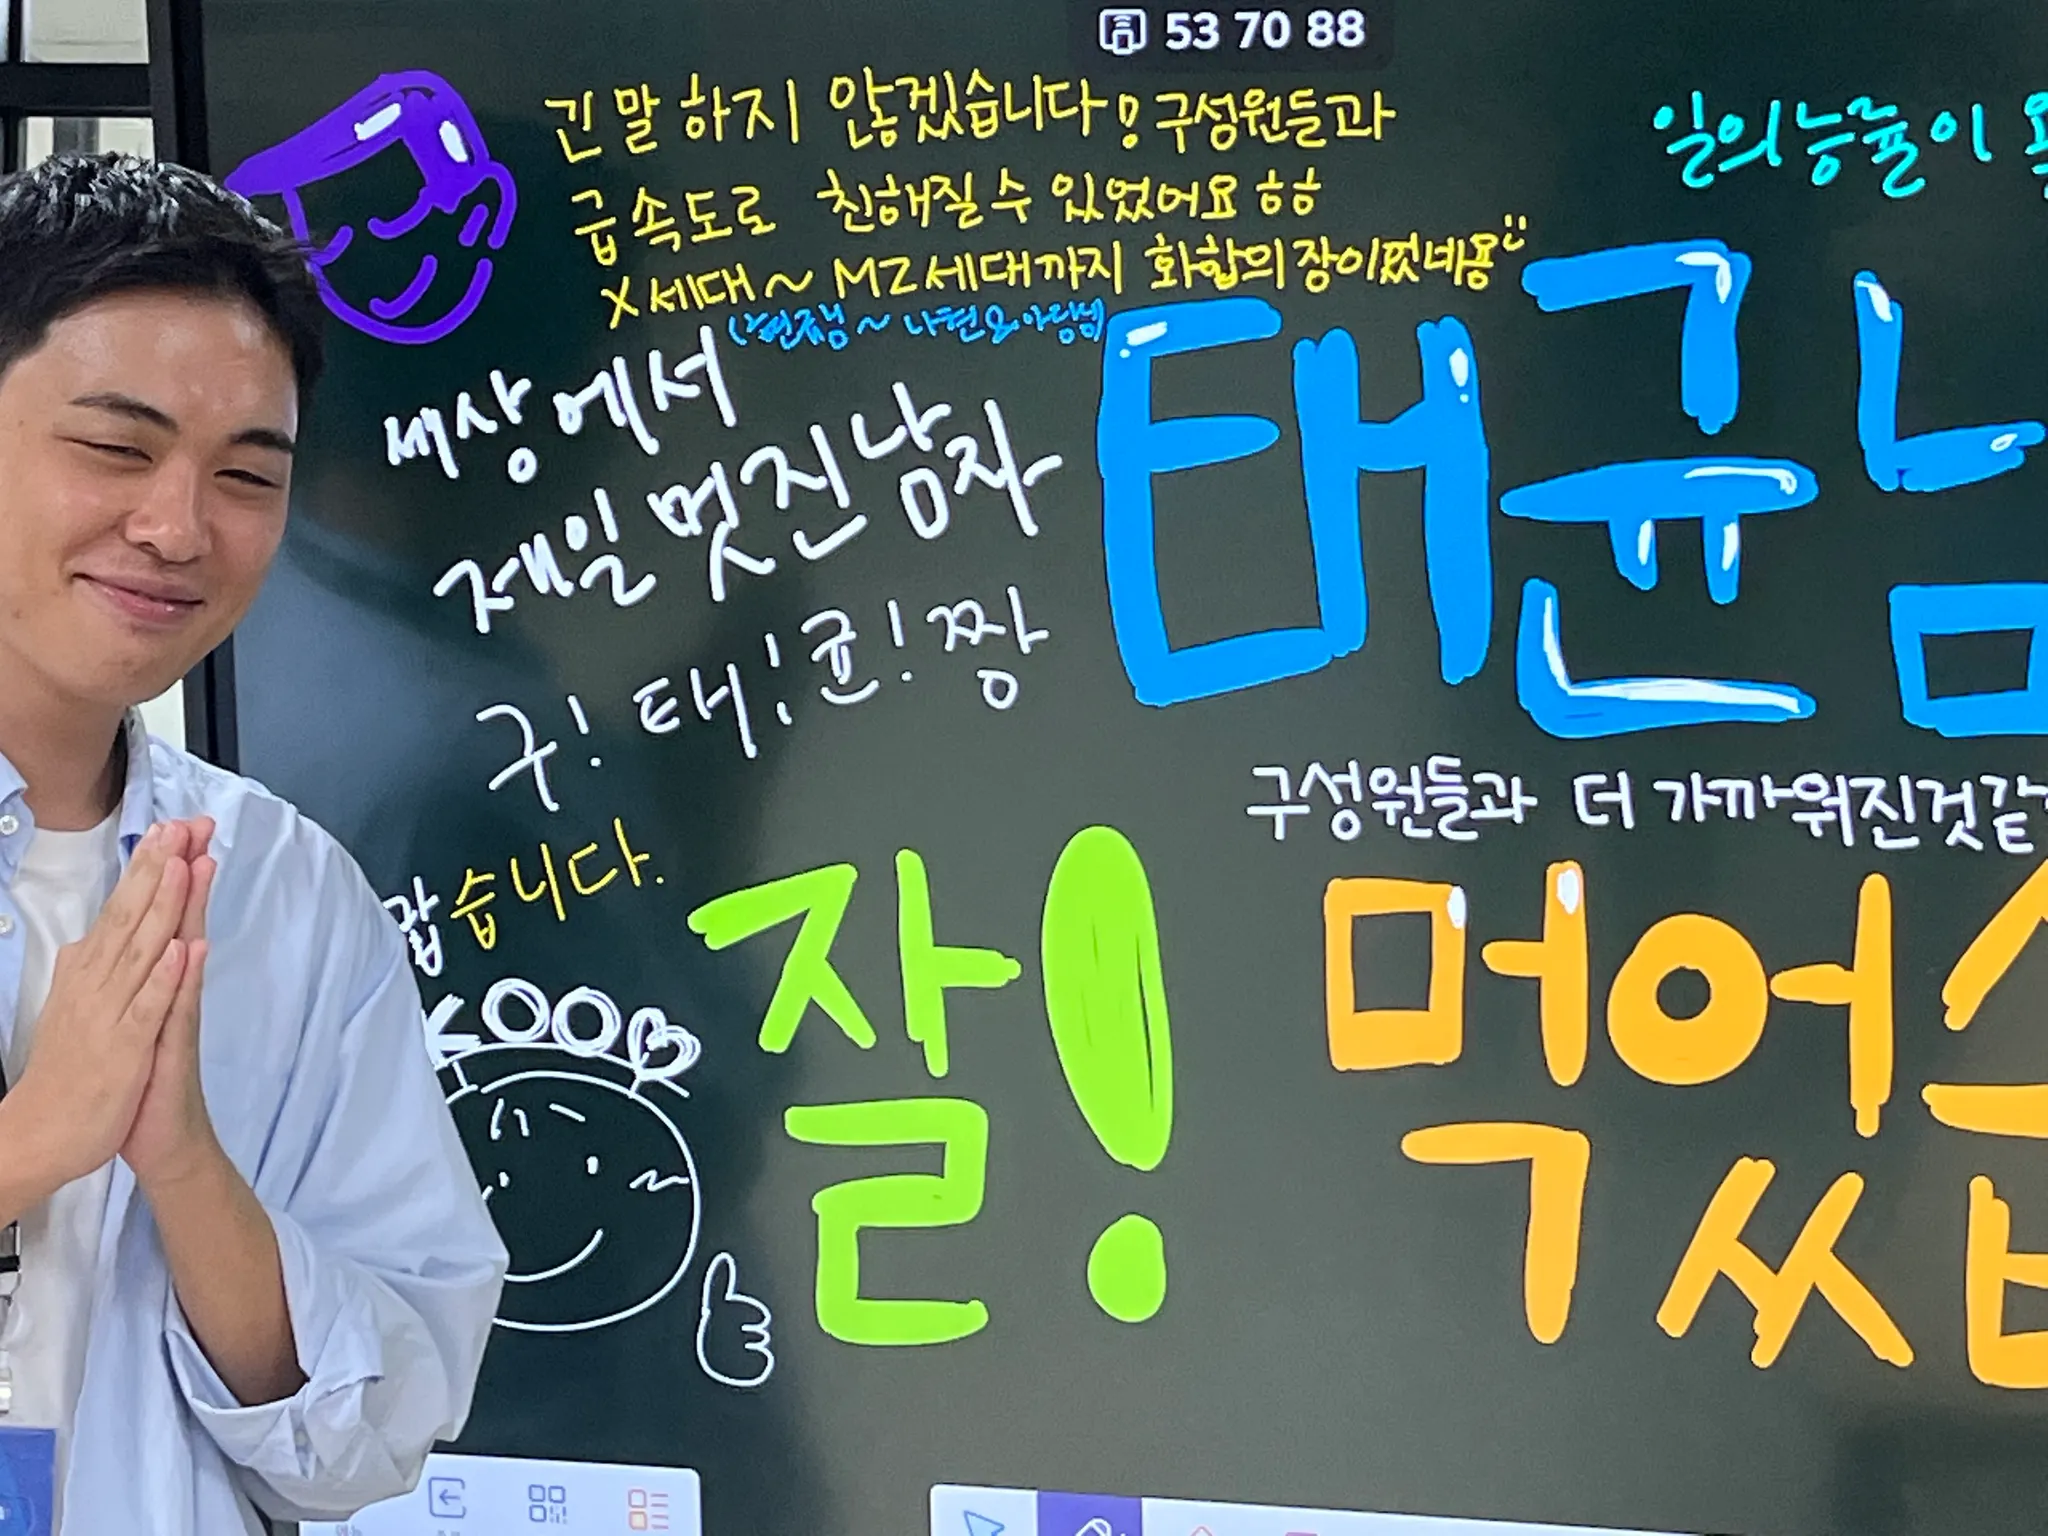 53 70 88
긴말하지 않겠습니다! 구성원들과
급속도로 친해질 수 있었어요 ㅎㅎ
X세대~MZ세대까지 화합의 장이었네용
일의 능률이
세상에서
제일 멋진 남자
구! 태! 균! 짱
태균님
구성원들과 더 가까워진것같
습니다.
잘!
먹었습
KOO